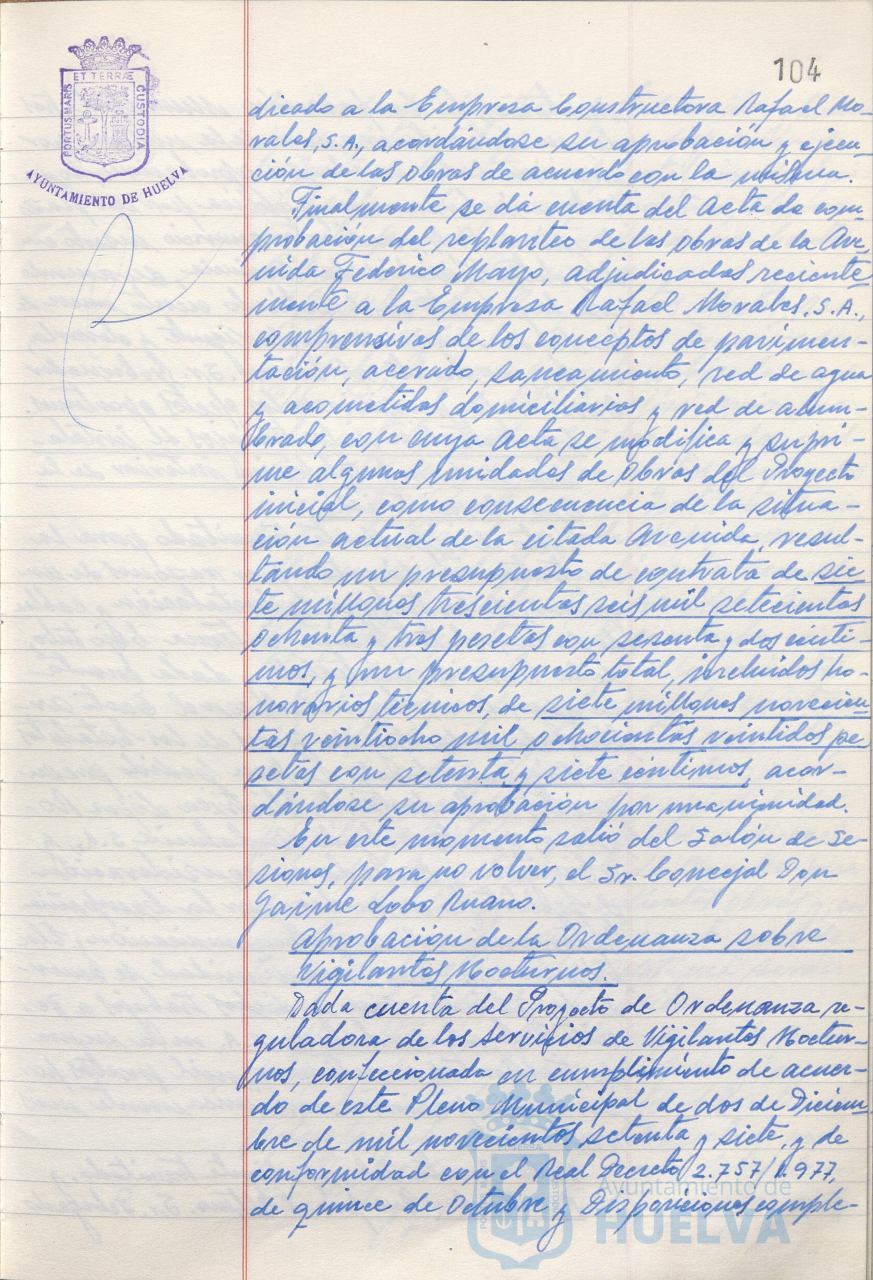 PORTUS MARIS ET TERRAE CUSTODIA
AYUNTAMIENTO DE HUELVA
104
dicado a la Empresa Constructora Rafael Mo-
rales, S.A., acordándose su aprobación y ejecu-
ción de las obras de acuerdo con la misma.
Finalmente se dá cuenta del Acta de com-
probación del replanteo de las obras de la Ave-
nida Federico Mayo, adjudicadas reciente-
mente a la Empresa Rafael Morales, S.A.,
comprensivas de los conceptos de pavimen-
tación, acerado, saneamiento, red de agua
y acometidas domiciliarias y red de alum-
brado, con cuya Acta se modifica y supri-
me algunas unidades de Obras del Proyecto
inicial, como consecuencia de la situa-
ción actual de la citada Avenida, resul-
tando un presupuesto de contrata de sie-
te millones trescientas seis mil setecientas
ochenta y tres pesetas con sesenta y dos cénti-
mos, y un presupuesto total, incluidos ho-
norarios técnicos, de siete millones novecien-
tas veintiocho mil ochocientas veintidos pe-
setas con setenta y siete céntimos, acor-
dándose su aprobación por unanimidad.
En este momento salió del Salón de Se-
siones, para no volver, el Sr. Concejal Don
Jaime Lobo Ruano.
Aprobación de la Ordenanza sobre
Vigilantes Nocturnos.
Dada cuenta del Proyecto de Ordenanza re-
guladora de los servicios de Vigilantes Noctur-
nos, confeccionada en cumplimiento de acuer-
do de este Pleno Municipal de dos de Diciem-
bre de mil novecientos setenta y siete, y de
conformidad con el Real Decreto 2.757/1.977,
de quince de Octubre y Disposiciones comple-
Ayuntamiento de
HUELVA